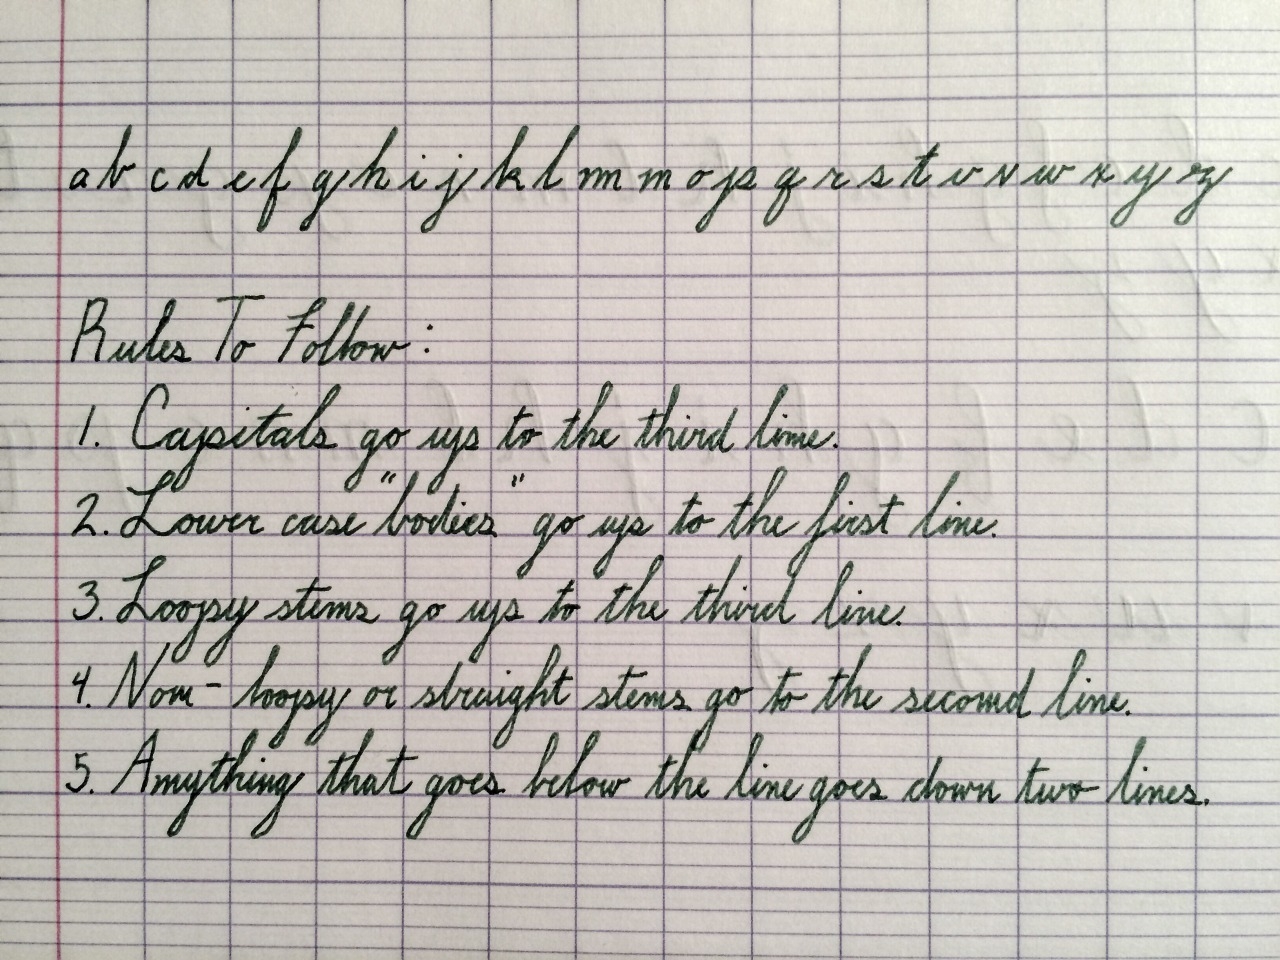 a b c d e f g h i j k l m n o p q r s t u v w x y z
Rules To Follow:
1. Capitals go up to the third line.
2. Lower case "bodies" go up to the first line.
3. Loopy stems go up to the third line.
4. Non-loopy or straight stems go to the second line.
5. Anything that goes below the line goes down two lines.